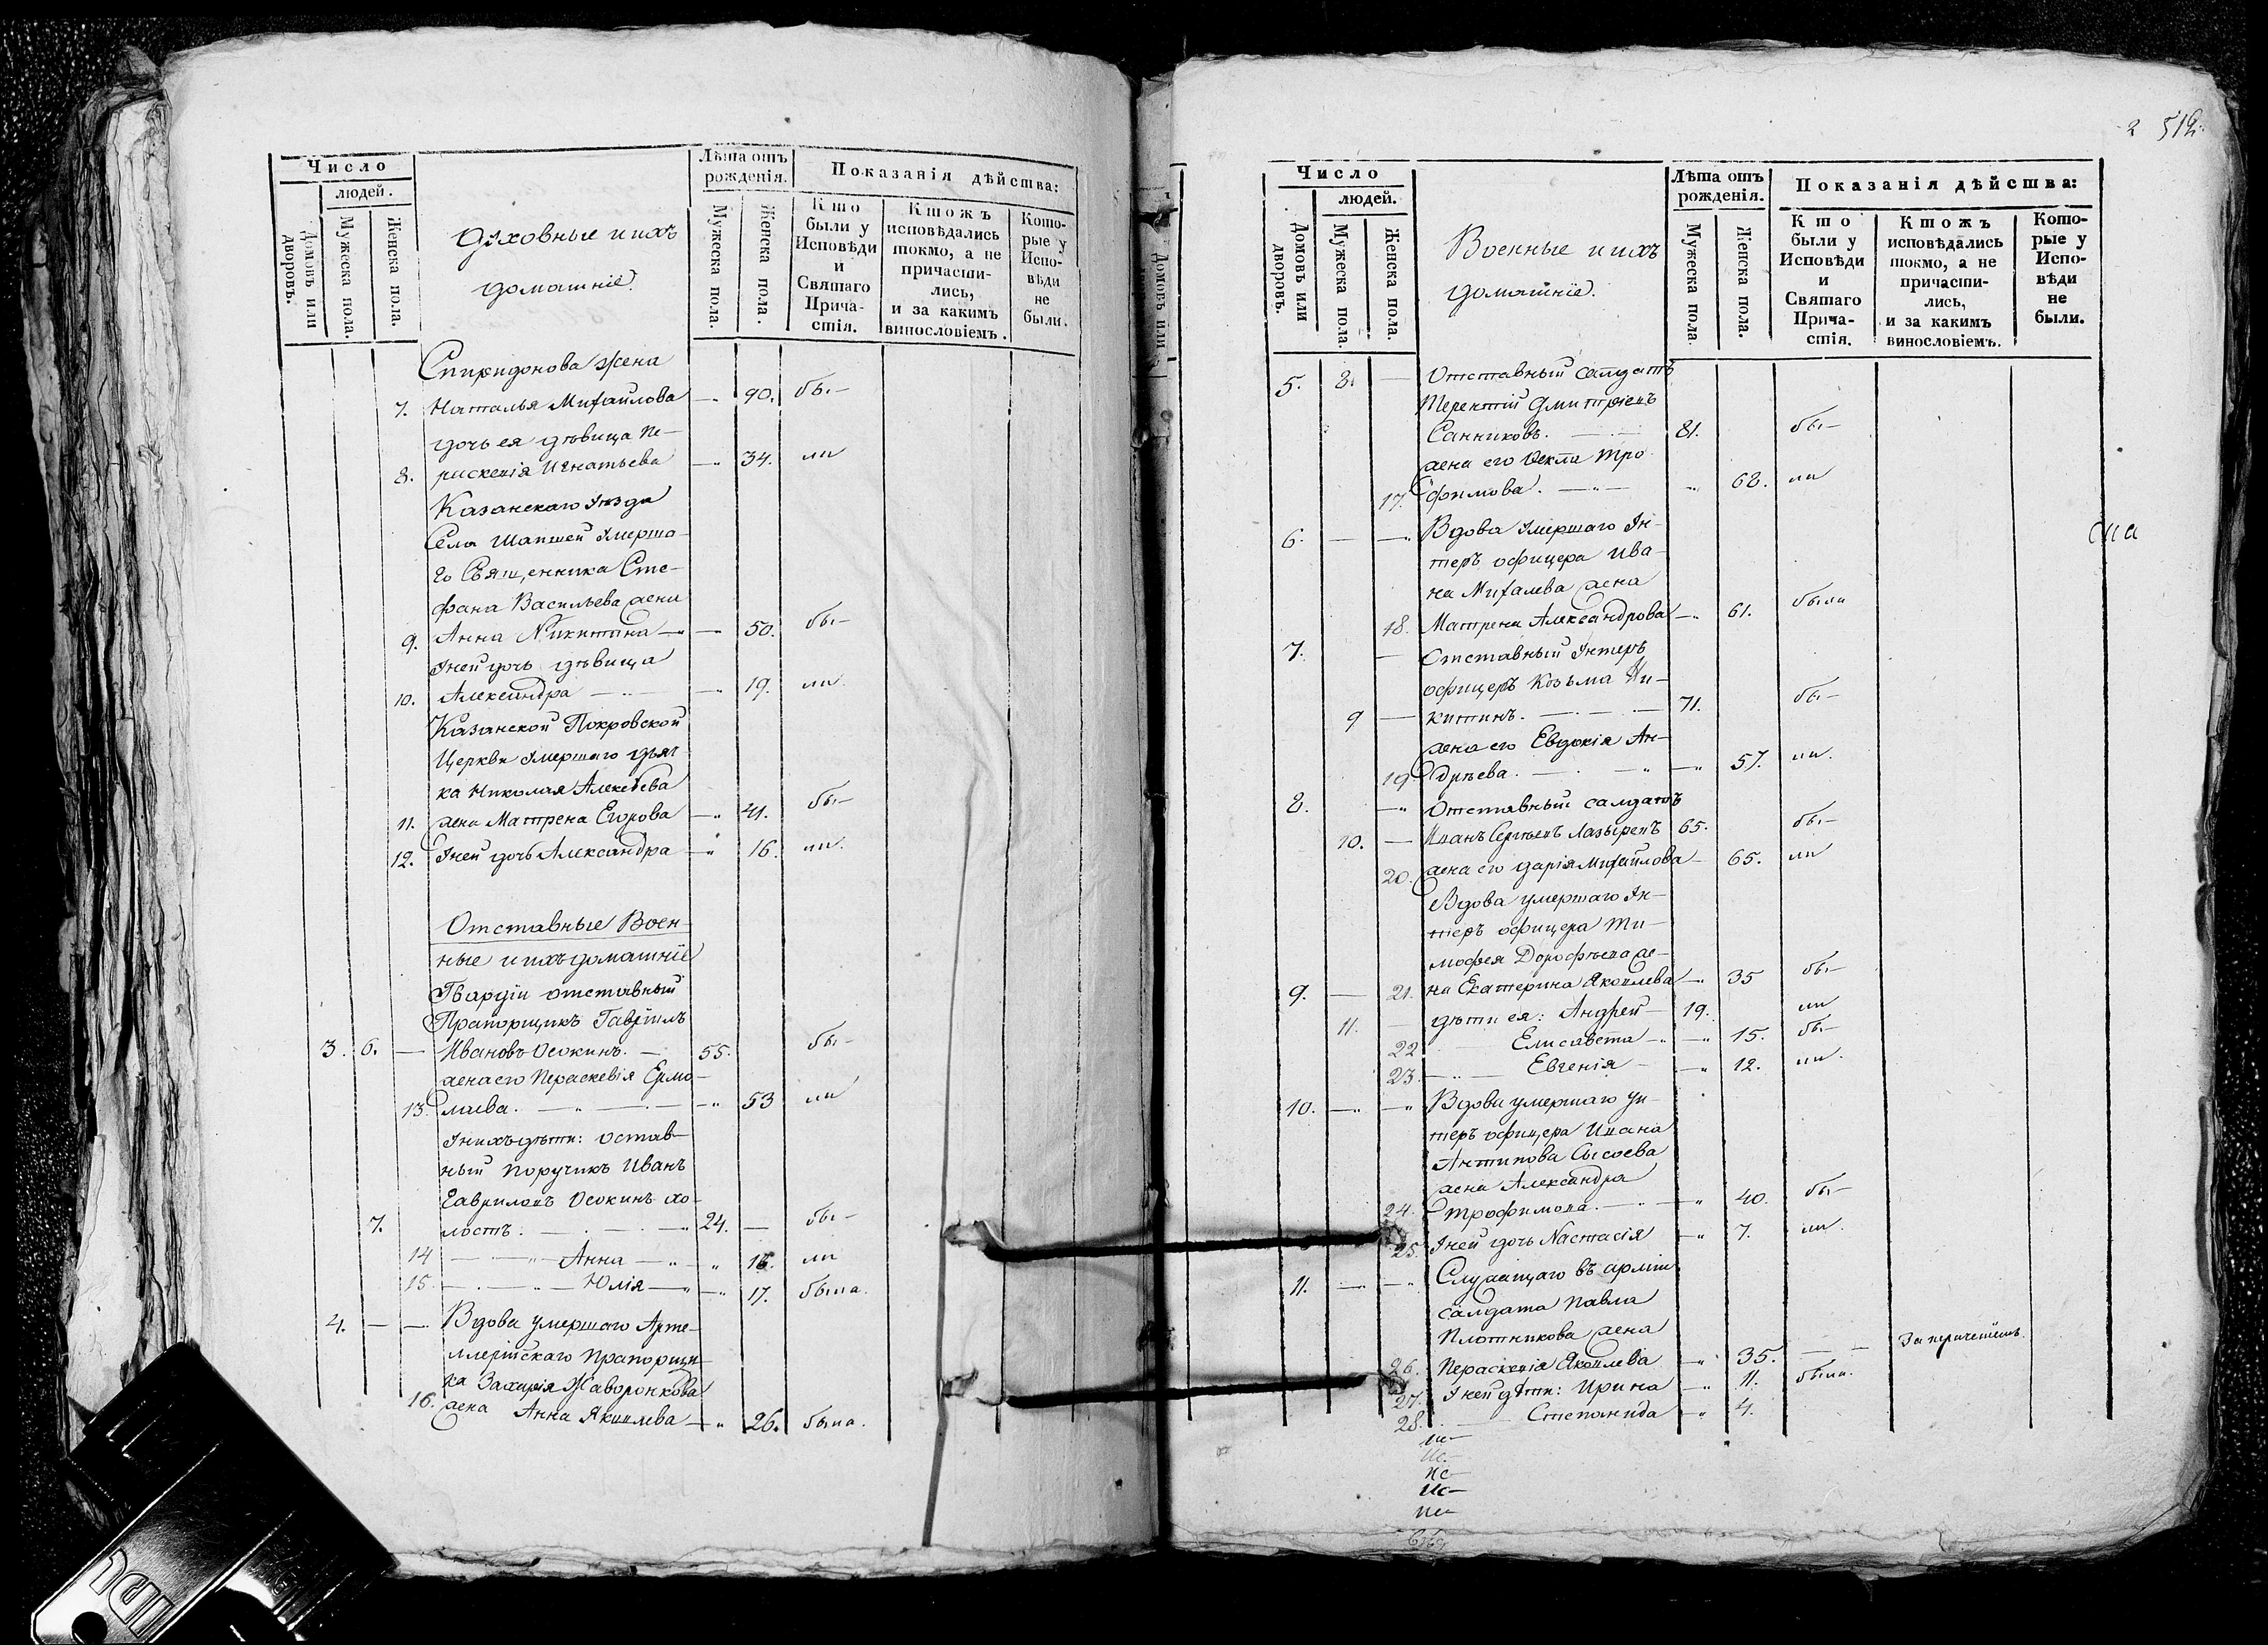 Число
людей.
Домовъ или дворовъ.
Мужеска пола.
Женска пола.
Духовные и ихъ
домашніе.
Лѣта отъ рожденія.
Мужеска пола.
Женска пола.
Показанія дѣйства:
Кто были у Исповѣди и Святаго Прича-стія.
Ктожъ исповѣдались токмо, а не причасти-лись, и за какимъ винословіемъ.
Кото-рые у Испо-вѣди не были.
Спиридонова жена
7. Наталья Михайлова — 90. бы—
дочь ея дѣвица Пе-
8. раскевія Игнатьева — 34. ла
Казанскаго уѣзда
Села Шапшей умерша-
го Священника Сте-
фана Васильева жена
9. Анна Никитина — 50. бы—
У ней дочь дѣвица
10. Александра — 19. ла
Казанской Покровской
Церкви умершаго дьяч-
ка Николая Алексѣева
11. жена Матрена Егорова — 41. бы—
12. У ней дочь Александра — 16. ла.
Отставные Воен-
ные и ихъ домашніе
Гвардіи отставный
Прапорщикъ Гавріилъ
3. 6. — Ивановъ Осокинъ. — 55. бы—
жена его Пераскевія Ермо-
13. лаева. — 53 ла
У нихъ дѣти: отстав-
ный поручикъ Иванъ
Гавриловъ Осокинъ хо-
7. лостъ. — 24. — бы—
14 — Анна — 18. ла
15. — Юлія — 17. была.
4. — — Вдова умершаго Арте-
ллерійскаго прапорщи-
ка Захарія Жаворонкова
16. жена Анна Яковлева — 26. была.
2 512.
Число
людей.
Домовъ или дворовъ.
Мужеска пола.
Женска пола.
Военные и ихъ
домашніе.
Лѣта отъ рожденія.
Мужеска пола.
Женска пола.
Показанія дѣйства:
Кто были у Исповѣди и Святаго Прича-стія.
Ктожъ исповѣдались токмо, а не причасти-лись, и за какимъ винословіемъ.
Кото-рые у Испо-вѣди не были.
5. 8. — Отставный салдатъ
Терентій Дмитріевъ
Санниковъ. — 81. бы—
жена его Өекла Тро-
17. фимова. — 68. ла
6. — — Вдова умершаго Ун-
теръ офицера Ива-
на Михалева жена
18. Матрена Александрова — 61. была
7. — Отставный Унтеръ
офицеръ Козьма Ни-
9 — китинъ. — 71. бы—
жена его Евдокія Ан-
19 дрѣева. — 57. ла.
8. — Отставный салдатъ
10. — Иванъ Сергѣевъ Лазыревъ 65. бы—
20. жена его Дарія Михайлова — 65. ла
Вдова умершаго Ун-
теръ офицера Ти-
мофея Дорофѣева же-
9. — 21. на Екатерина Яковлева — 35 бы—
11. — дѣти ея: Андрей — 19. ла
22 Елисавета — 15. бы—
23. — Евгенія — 12. ла.
10. — — Вдова умершаго Ун-
теръ офицера Ивана
Антипова Сысоева
жена Александра
24. Трофимова. — 40. бы—
25. У ней дочь Настасія — 7. ла.
11. — — Служащаго въ арміи
салдата Павла
Плотникова жена
26. Пераскевія Яковлева — 35. — —
27. У ней дѣти: Ирина — 11. была.
28. — Степанида — 4.